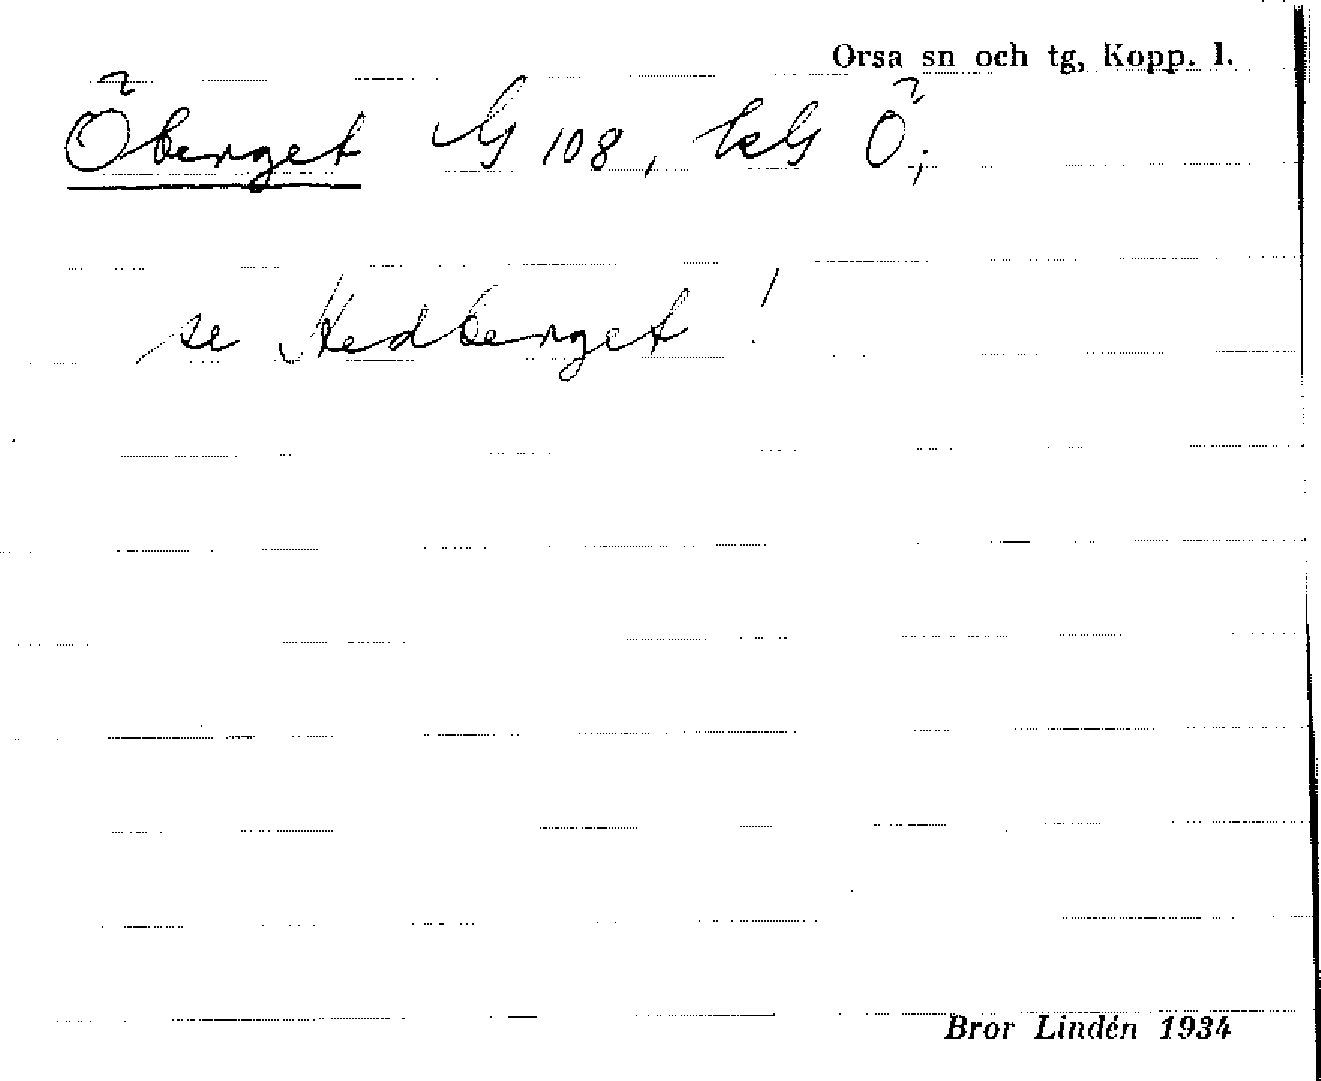 Orsa sn och tg, Kopp. l.
Öberget G 108, Ö;
se Hedberget!
Bror Lindén 1934